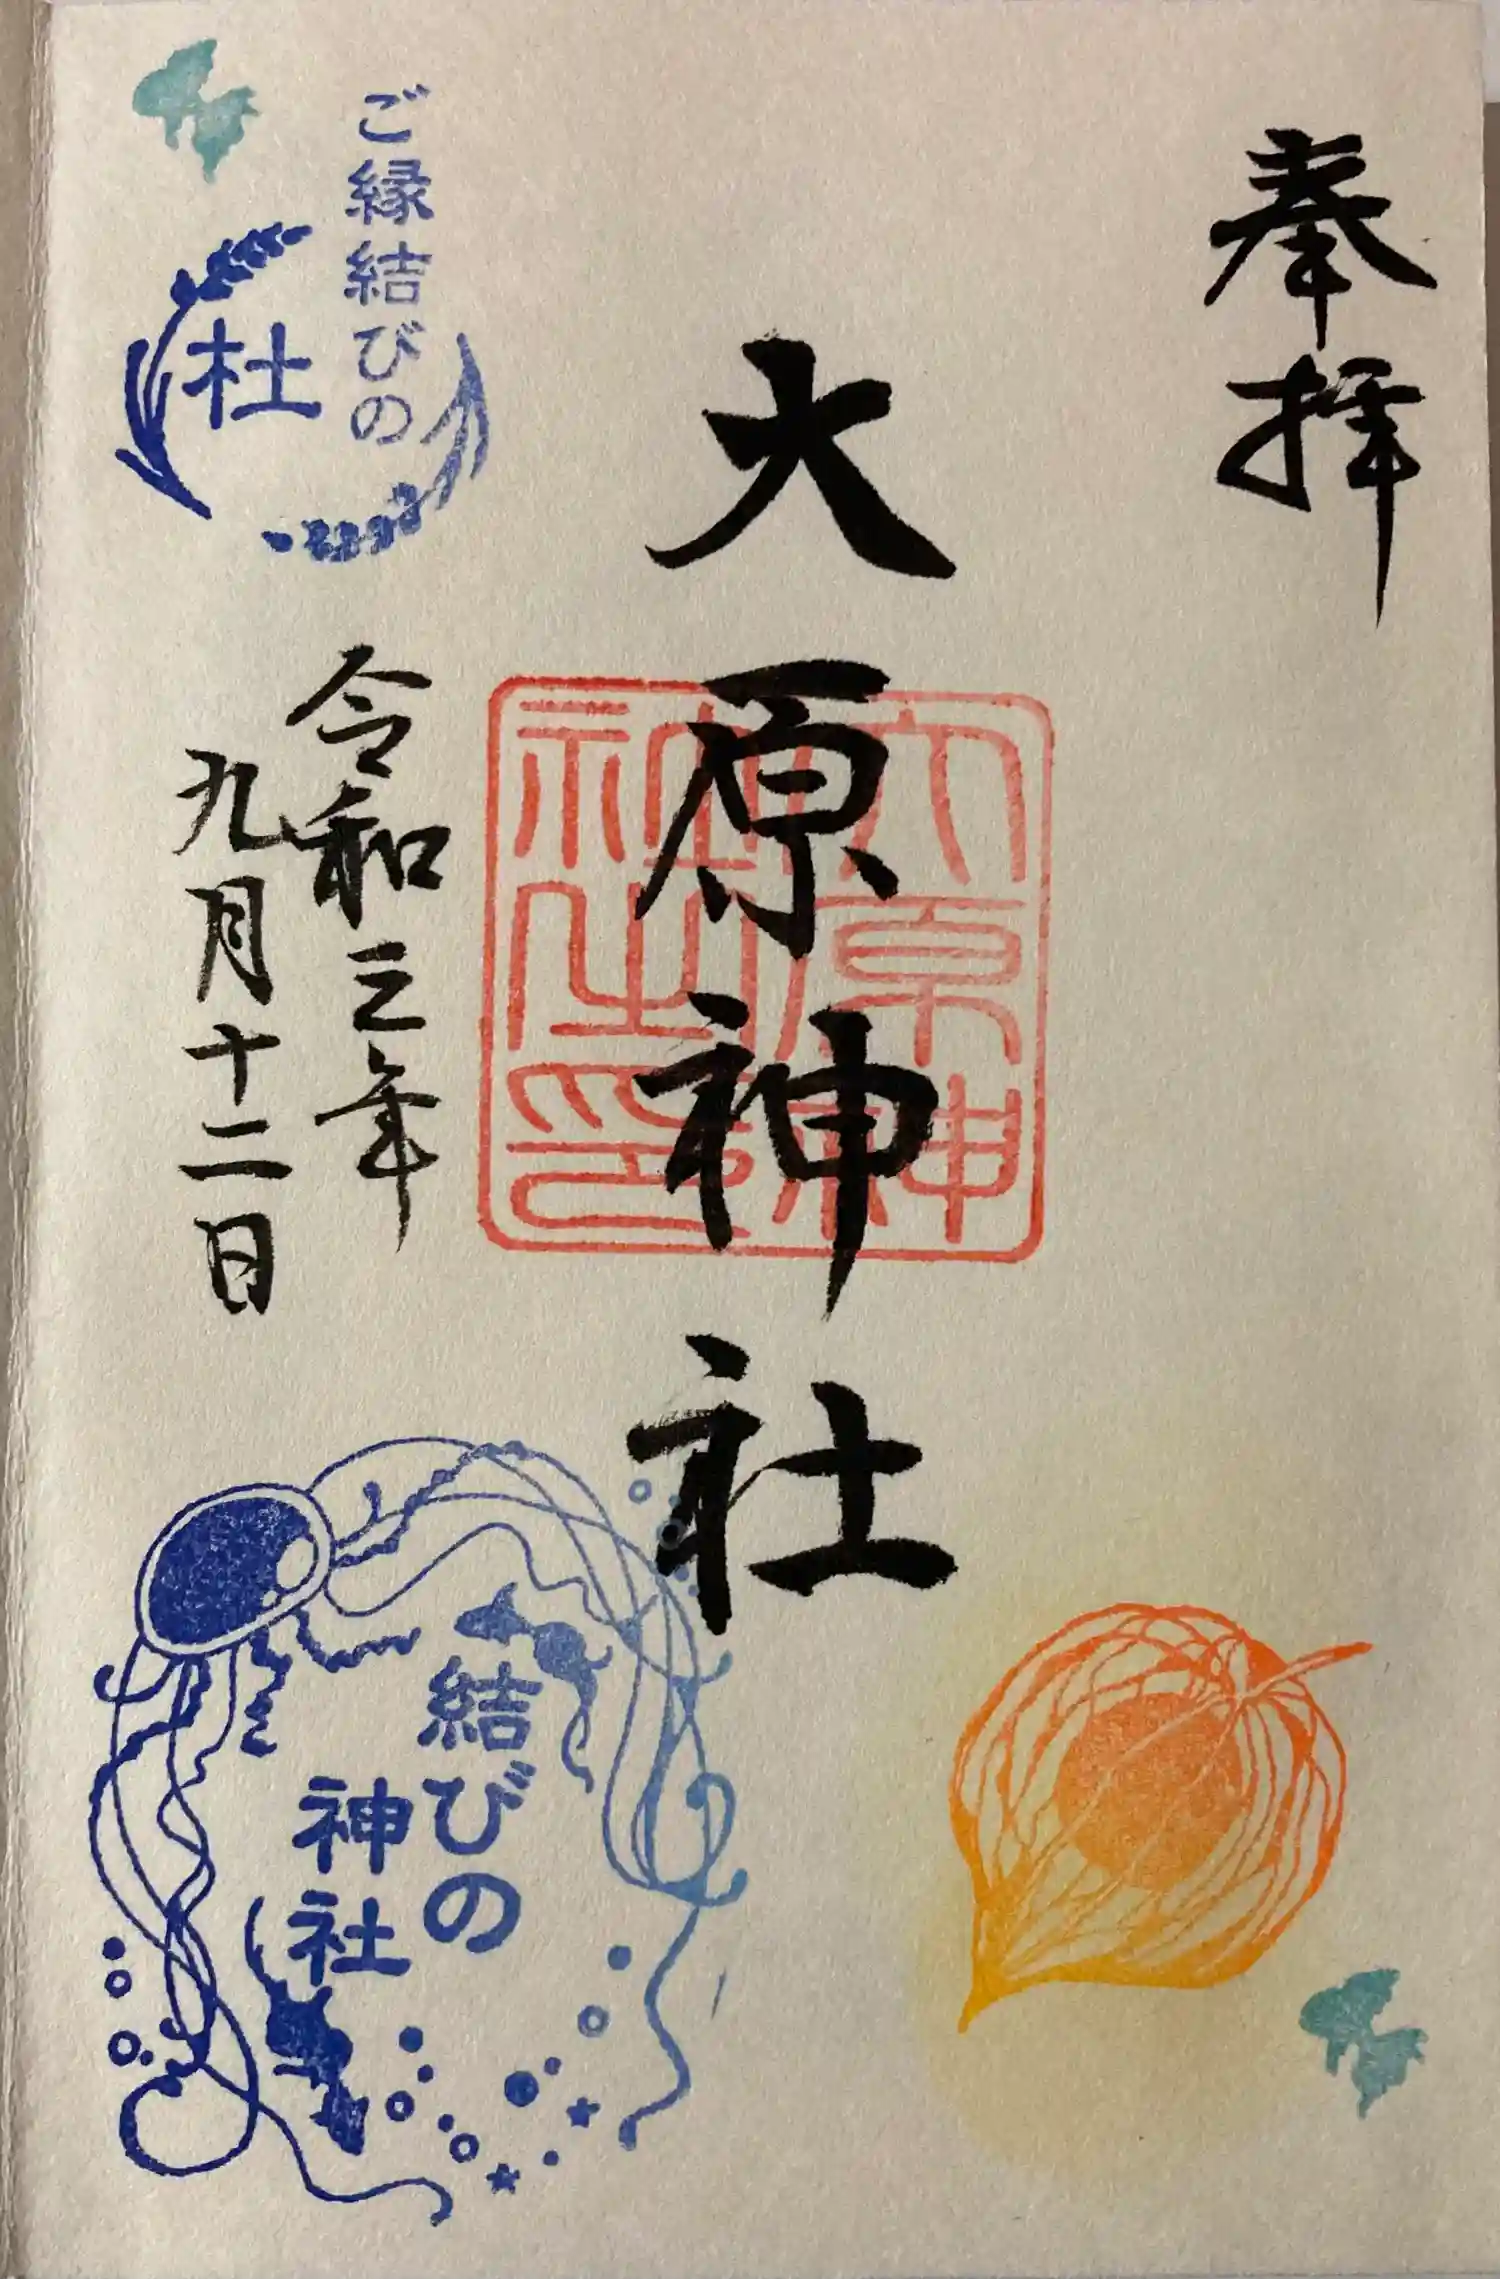 奉拝
大原神社
大原神
社之印
令和三年
九月十二日
ご縁結びの
杜
結びの
神社